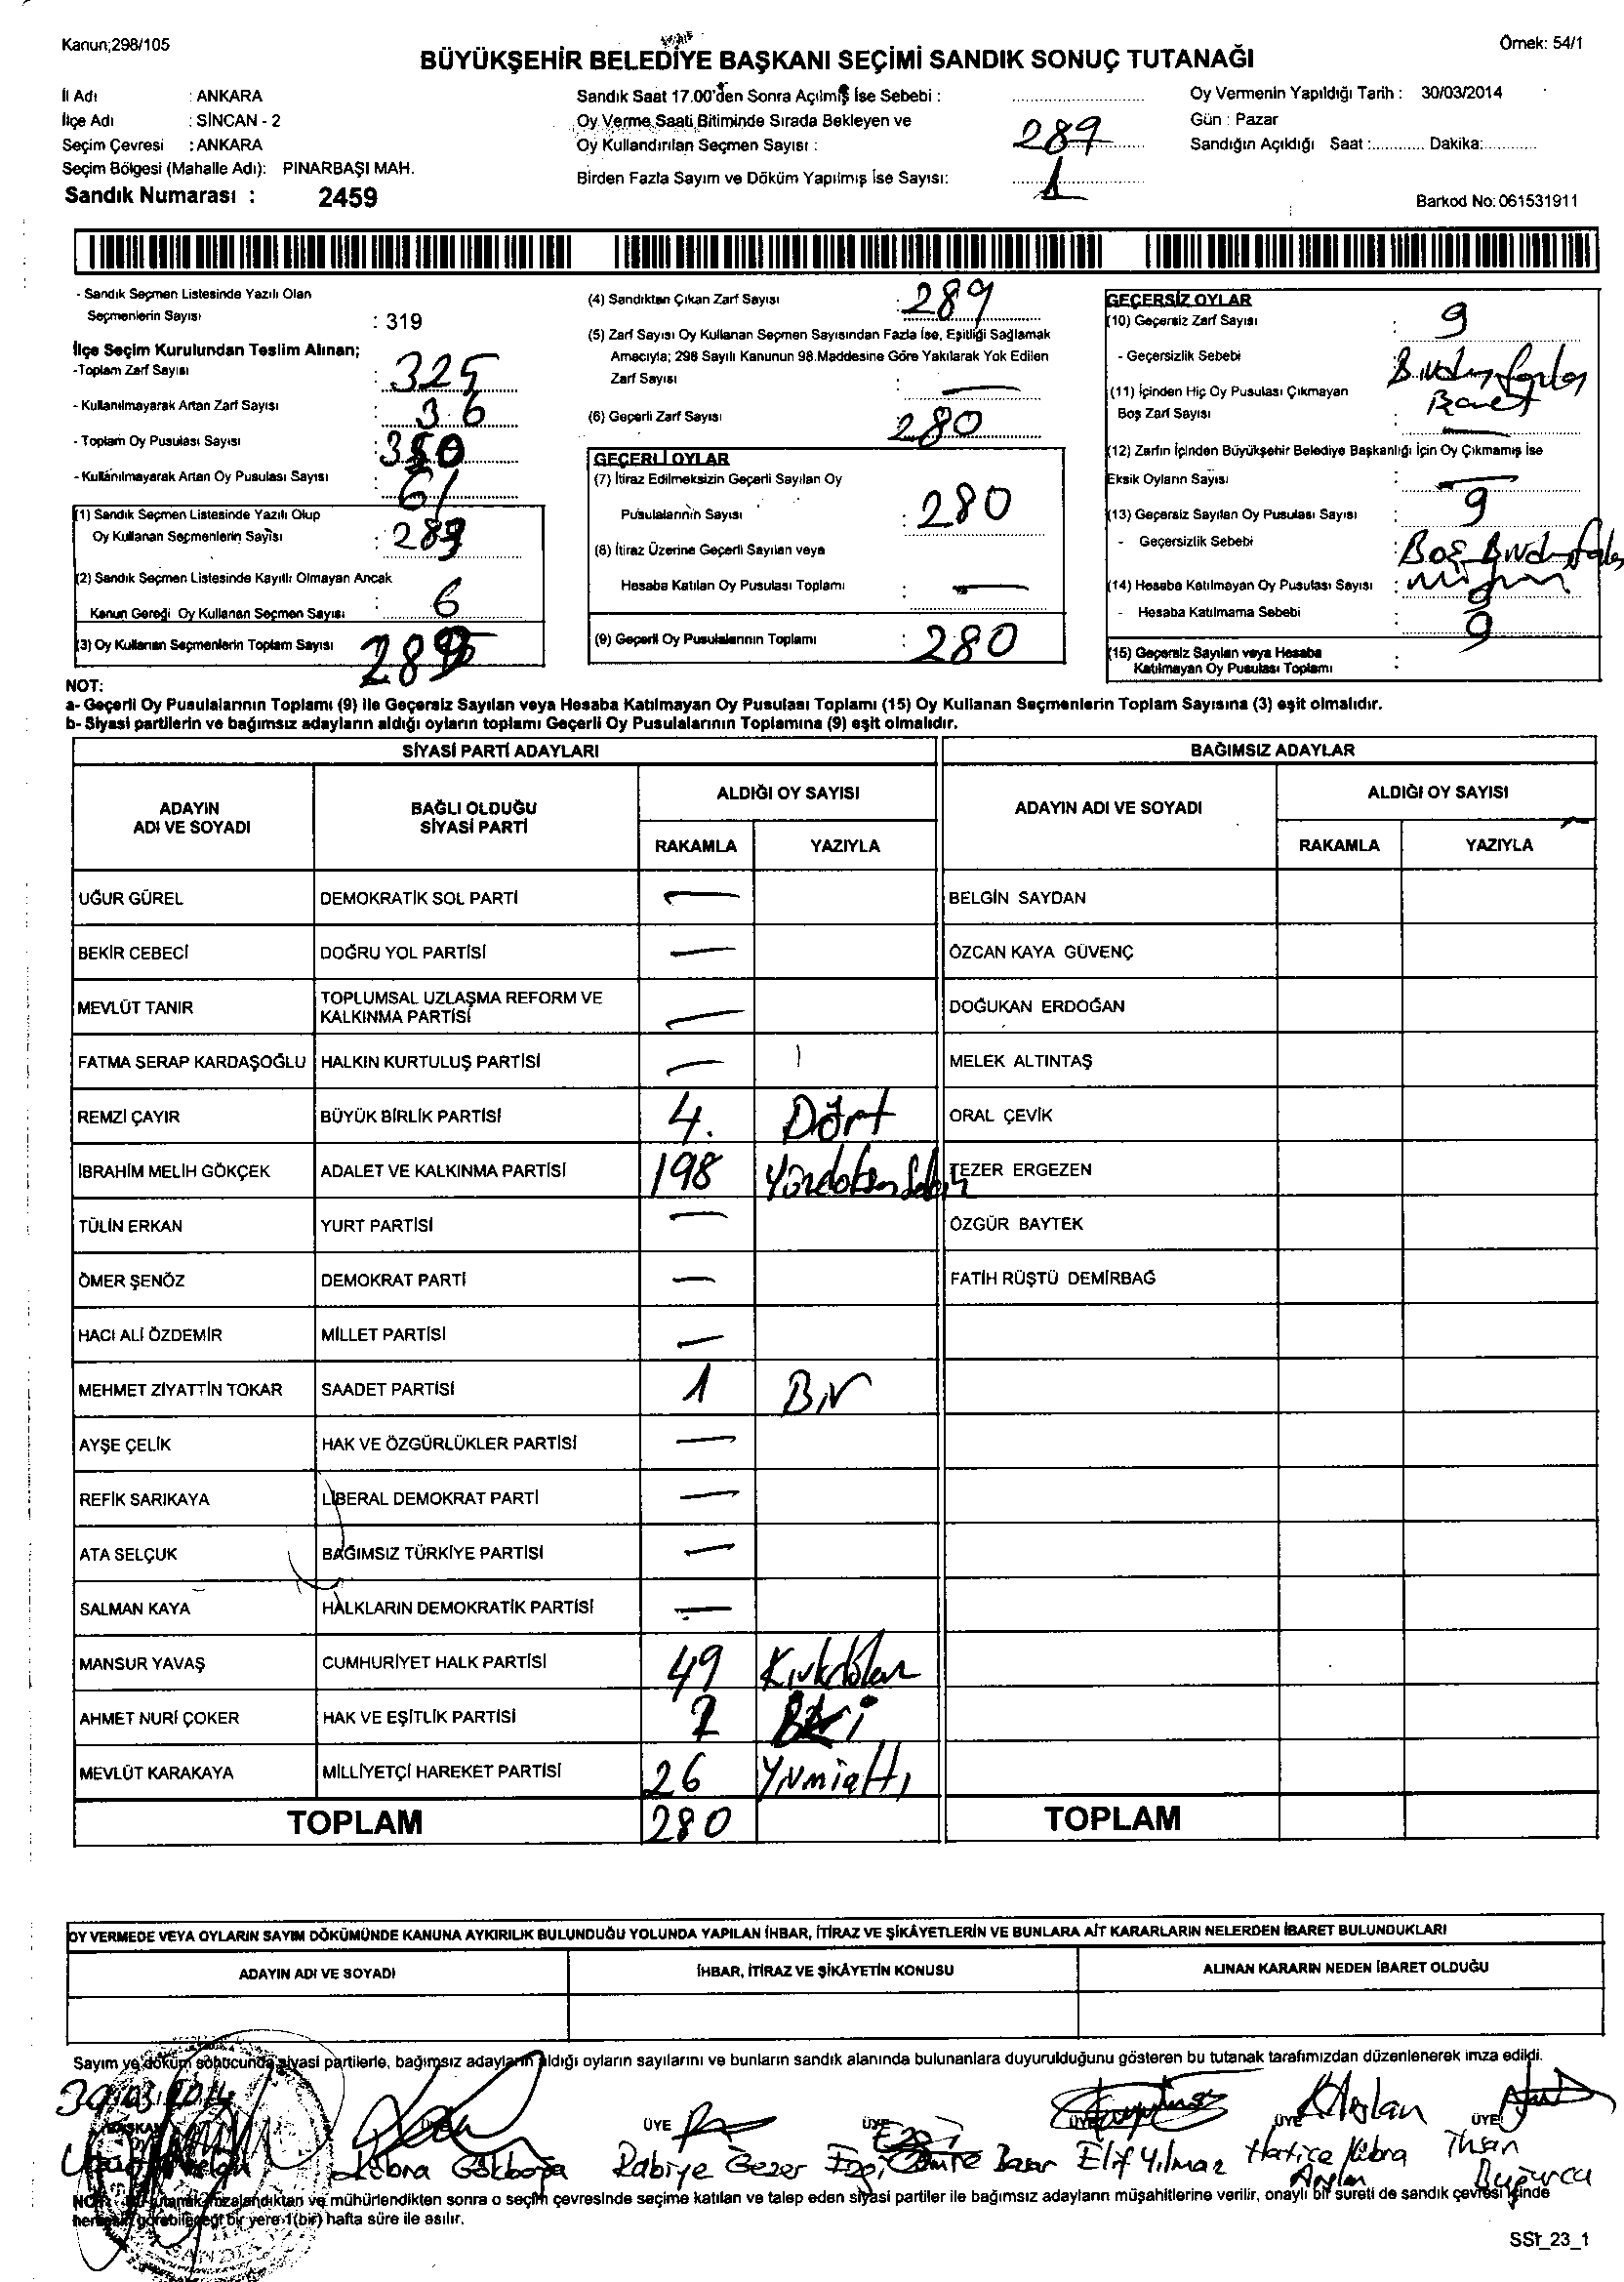 Kanun;298/105
Örnek: 54/1
BÜYÜKŞEHİR BELEDİYE BAŞKANI SEÇİMİ SANDIK SONUÇ TUTANAĞI
İl Adı : ANKARA
İlçe Adı : SİNCAN - 2
Seçim Çevresi : ANKARA
Seçim Bölgesi (Mahalle Adı): PINARBAŞI MAH.
Sandık Numarası : 2459
Sandık Saat 17.00'den Sonra Açılmış İse Sebebi :
Oy Verme Saati Bitiminde Sırada Bekleyen ve
Oy Kullandırılan Seçmen Sayısı : 289
Birden Fazla Sayım ve Döküm Yapılmış İse Sayısı: 1
Oy Vermenin Yapıldığı Tarih : 30/03/2014
Gün : Pazar
Sandığın Açıldığı Saat :............ Dakika:............
Barkod No: 061531911
- Sandık Seçmen Listesinde Yazılı Olan
Seçmenlerin Sayısı : 319
İlçe Seçim Kurulundan Teslim Alınan;
-Toplam Zarf Sayısı : 325
- Kullanılmayarak Artan Zarf Sayısı : 36
- Toplam Oy Pusulası Sayısı : 350
- Kullanılmayarak Artan Oy Pusulası Sayısı : 61
(1) Sandık Seçmen Listesinde Yazılı Olup
Oy Kullanan Seçmenlerin Sayısı :
(2) Sandık Seçmen Listesinde Kayıtlı Olmayan Ancak
Kanun Gereği Oy Kullanan Seçmen Sayısı : 6
(3) Oy Kullanan Seçmenlerin Toplam Sayısı
(4) Sandıktan Çıkan Zarf Sayısı : 289
(5) Zarf Sayısı Oy Kullanan Seçmen Sayısından Fazla İse, Eşitliği Sağlamak
Amacıyla; 298 Sayılı Kanunun 98.Maddesine Göre Yakılarak Yok Edilen
Zarf Sayısı : —
(6) Geçerli Zarf Sayısı 280
GEÇERLİ OYLAR
(7) İtiraz Edilmeksizin Geçerli Sayılan Oy
Pusulalarının Sayısı : 280
(8) İtiraz Üzerine Geçerli Sayılan veya
Hesaba Katılan Oy Pusulası Toplamı : —
(9) Geçerli Oy Pusulalarının Toplamı : 280
GEÇERSİZ OYLAR
(10) Geçersiz Zarf Sayısı : 9
- Geçersizlik Sebebi : Birden fazla
(11) İçinden Hiç Oy Pusulası Çıkmayan
Boş Zarf Sayısı : —
(12) Zarfın İçinden Büyükşehir Belediye Başkanlığı İçin Oy Çıkmamış İse
Eksik Oyların Sayısı : —
(13) Geçersiz Sayılan Oy Pusulası Sayısı : 9
- Geçersizlik Sebebi : Boş Birden fazla
(14) Hesaba Katılmayan Oy Pusulası Sayısı : 9
- Hesaba Katılmama Sebebi :
(15) Geçersiz Sayılan veya Hesaba
Katılmayan Oy Pusulası Toplamı : 9
NOT:
a- Geçerli Oy Pusulalarının Toplamı (9) ile Geçersiz Sayılan veya Hesaba Katılmayan Oy Pusulası Toplamı (15) Oy Kullanan Seçmenlerin Toplam Sayısına (3) eşit olmalıdır.
b- Siyasi partilerin ve bağımsız adayların aldığı oyların toplamı Geçerli Oy Pusulalarının Toplamına (9) eşit olmalıdır.
SİYASİ PARTİ ADAYLARI
BAĞIMSIZ ADAYLAR
ADAYIN
ADI VE SOYADI
BAĞLI OLDUĞU
SİYASİ PARTİ
ALDIĞI OY SAYISI
RAKAMLA YAZIYLA
ADAYIN ADI VE SOYADI
ALDIĞI OY SAYISI
RAKAMLA YAZIYLA
UĞUR GÜREL DEMOKRATİK SOL PARTİ — BELGİN SAYDAN
BEKİR CEBECİ DOĞRU YOL PARTİSİ — ÖZCAN KAYA GÜVENÇ
MEVLÜT TANIR TOPLUMSAL UZLAŞMA REFORM VE
KALKINMA PARTİSİ — DOĞUKAN ERDOĞAN
FATMA SERAP KARDAŞOĞLU HALKIN KURTULUŞ PARTİSİ — MELEK ALTINTAŞ
REMZİ ÇAYIR BÜYÜK BİRLİK PARTİSİ 4. Dört ORAL ÇEVİK
İBRAHİM MELİH GÖKÇEK ADALET VE KALKINMA PARTİSİ 198 Yüzdoksan Sekiz TEZER ERGEZEN
TÜLİN ERKAN YURT PARTİSİ — ÖZGÜR BAYTEK
ÖMER ŞENÖZ DEMOKRAT PARTİ — FATİH RÜŞTÜ DEMİRBAĞ
HACI ALİ ÖZDEMİR MİLLET PARTİSİ —
MEHMET ZİYATTİN TOKAR SAADET PARTİSİ 1 Bir
AYŞE ÇELİK HAK VE ÖZGÜRLÜKLER PARTİSİ —
REFİK SARIKAYA LİBERAL DEMOKRAT PARTİ —
ATA SELÇUK BAĞIMSIZ TÜRKİYE PARTİSİ —
SALMAN KAYA HALKLARIN DEMOKRATİK PARTİSİ —
MANSUR YAVAŞ CUMHURİYET HALK PARTİSİ 49 Kırkdokuz
AHMET NURİ ÇOKER HAK VE EŞİTLİK PARTİSİ 2
MEVLÜT KARAKAYA MİLLİYETÇİ HAREKET PARTİSİ 26 Yirmialtı
TOPLAM 280 TOPLAM
OY VERMEDE VEYA OYLARIN SAYIM DÖKÜMÜNDE KANUNA AYKIRILIK BULUNDUĞU YOLUNDA YAPILAN İHBAR, İTİRAZ VE ŞİKÂYETLERİN VE BUNLARA AİT KARARLARIN NELERDEN İBARET BULUNDUKLARI
ADAYIN ADI VE SOYADI İHBAR, İTİRAZ VE ŞİKÂYETİN KONUSU ALINAN KARARIN NEDEN İBARET OLDUĞU
Sayım ve döküm sonucunda siyasi partilerle, bağımsız adayların aldığı oyların sayılarını ve bunların sandık alanında bulunanlara duyurulduğunu gösteren bu tutanak tarafımızdan düzenlenerek imza edildi.
30/03/2014
BAŞKAN ÜYE ÜYE ÜYE ÜYE ÜYE
Kübra Gökboğa Rabiye Gezer Ezgi Emre Basar Elif Yılmaz Hatice Kübra Arslan İhsan Buğurcu
NOT: Bu tutanak imzalandıktan ve mühürlendikten sonra o seçim çevresinde seçime katılan ve talep eden siyasi partiler ile bağımsız adayların müşahitlerine verilir, onaylı bir sureti de sandık çevresi içinde
herkesin görebileceği bir yere 1(bir) hafta süre ile asılır.
SSt_23_1